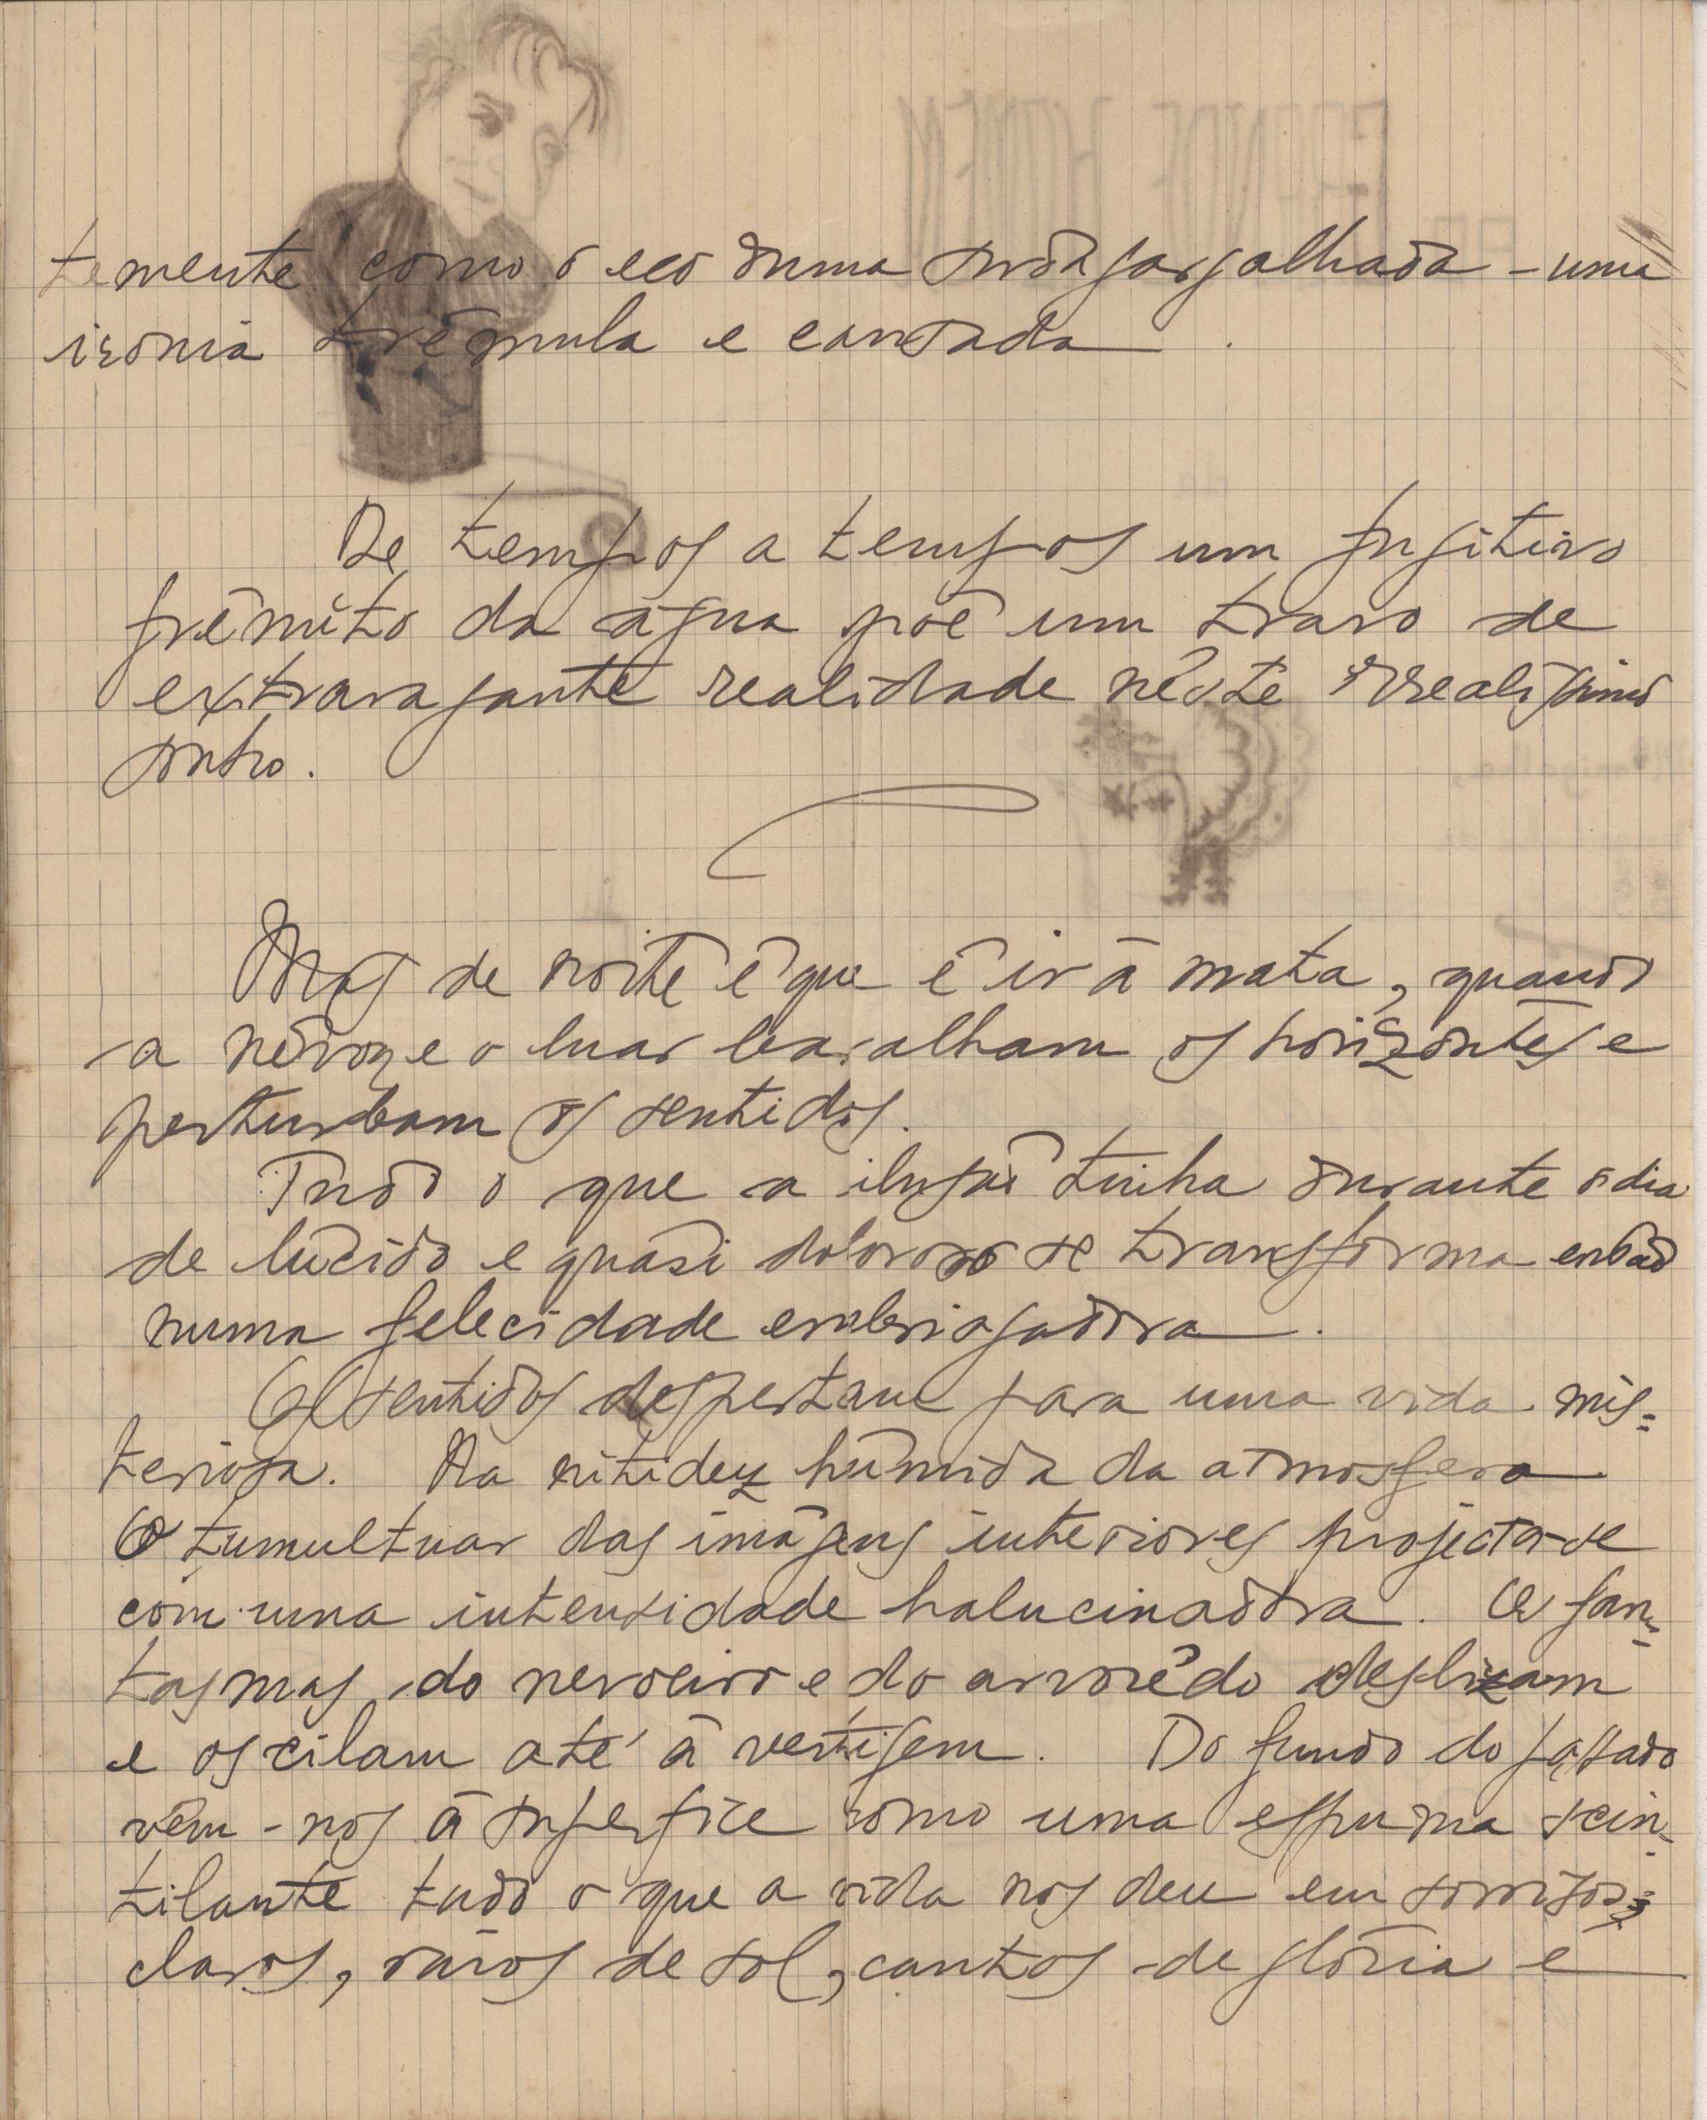 temente como o eco duma surda gargalhada - uma
ironia trémula e cansada.
De tempos a tempos um fugitivo
frémito da água põe um travo de
extravagante realidade nêste irrealíssimo
sonho.
Mas de noite é que é ir á mata, quando
a névoa e o luar baralham os horizontes e
perturbam os sentidos.
Tudo o que a ilusão tinha durante o dia
de lúcido e quási doloroso se transforma então
numa felecidade embriagadora.
Os sentidos despertam para uma vida mis=
teriosa. Na nitidez húmida da atmosfera
O tumultuar das imágens interiores projecta-se
com uma intensidade halucinadora. Os fan=
tasmas do nevoeiro e do arvorêdo deslizam
e oscilam até á vertigem. Do fundo do passado
vêm-nos á superfíce como uma espuma scin=
tilante tudo o que a vida nos deu em sorrisos
claros, ráios de sol, cantos de glória e